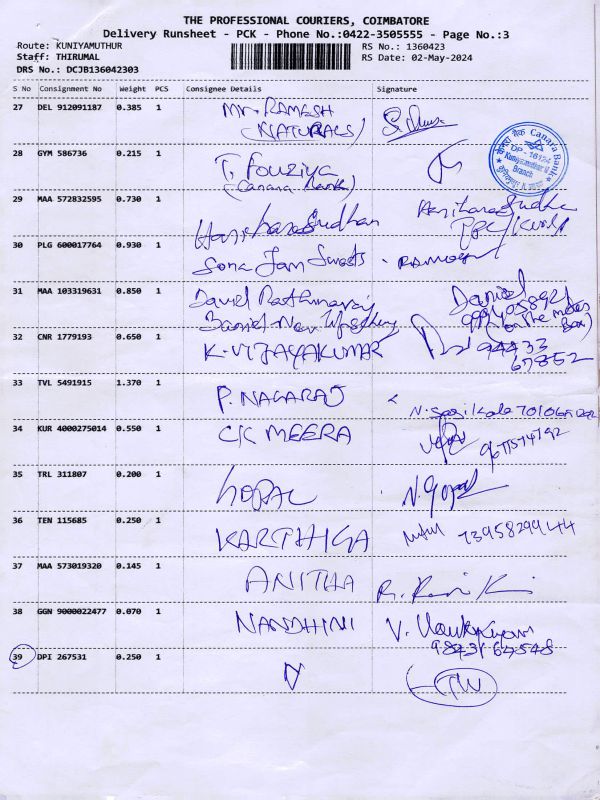 THE PROFESSIONAL COURIERS, COIMBATORE
Delivery Runsheet - PCK - Phone No.:0422-3505555 - Page No.:3
Route: KUNIYAMUTHUR
RS No.: 1360423
Staff: THIRUMAL
RS Date: 02-May-2024
DRS No.: DCJB136042303
S No Consignment No Weight PCS Consignee Details Signature
27 DEL 912091187 0.385 1 Mr. RAMESH
(NATURALS)
28 GYM 586736 0.215 1 T. Fouziya
(Canara Bank)
Canara Bank
DP - 16124
Branch
29 MAA 572832595 0.730 1 Hariharasudhan Hariharasudha
30 PLG 600017764 0.930 1 Sona Jam Sweets
31 MAA 103319631 0.850 1 David Daniel
(on the meter
Box)
32 CNR 1779193 0.650 1 K. VIJAYAKUMAR 94433
67852
33 TVL 5491915 1.370 1 P. NAGARAJ
34 KUR 4000275014 0.550 1 CK MEERA
35 TRL 311807 0.200 1 GOPAL N. Gopal
36 TEN 115685 0.250 1 KARTHIGA
37 MAA 573019320 0.145 1 ANITHA
38 GGN 9000022477 0.070 1 NANDHINI V.
39 DPI 267531 0.250 1